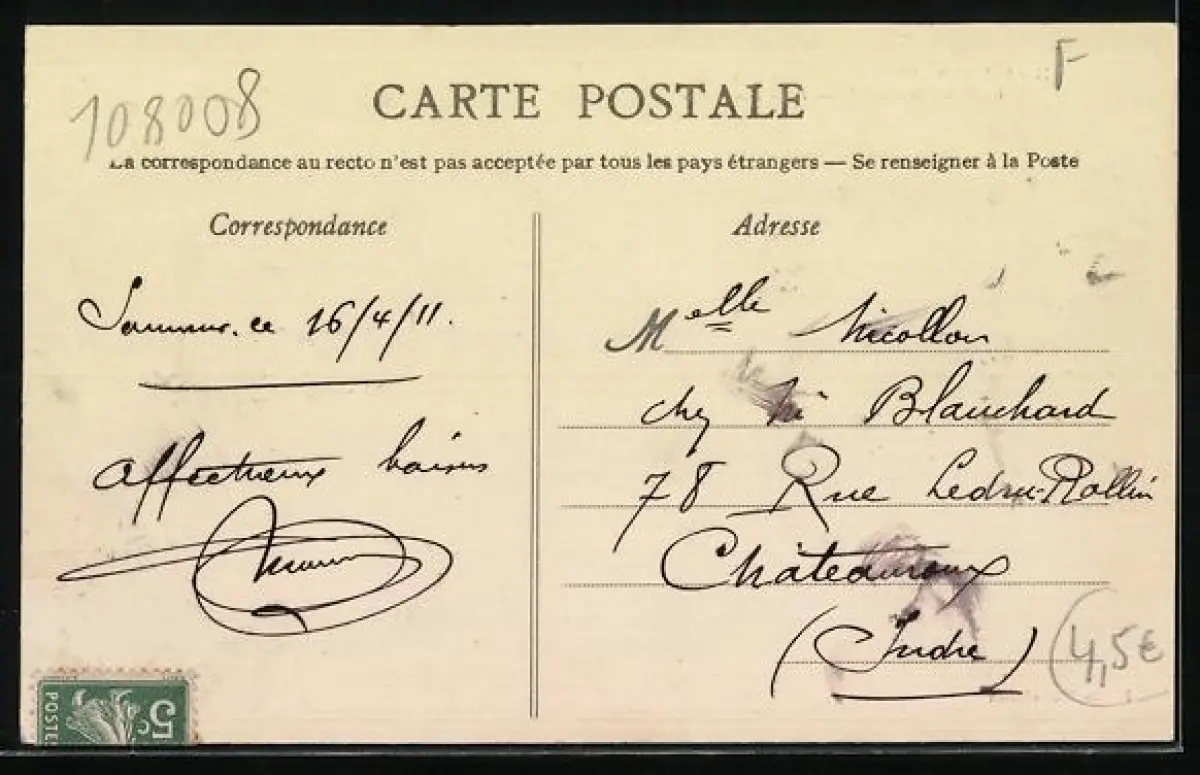 108008
F
CARTE POSTALE
La correspondance au recto n'est pas acceptée par tous les pays étrangers — Se renseigner à la Poste
Correspondance
Saumur, ce 16/4/11.
Affectueux baisers
Adresse
Melle Nicollon
chez Blanchard
78 Rue Ledru-Rollin
Châteauroux
(Indre)
4,5€
POSTES
5c